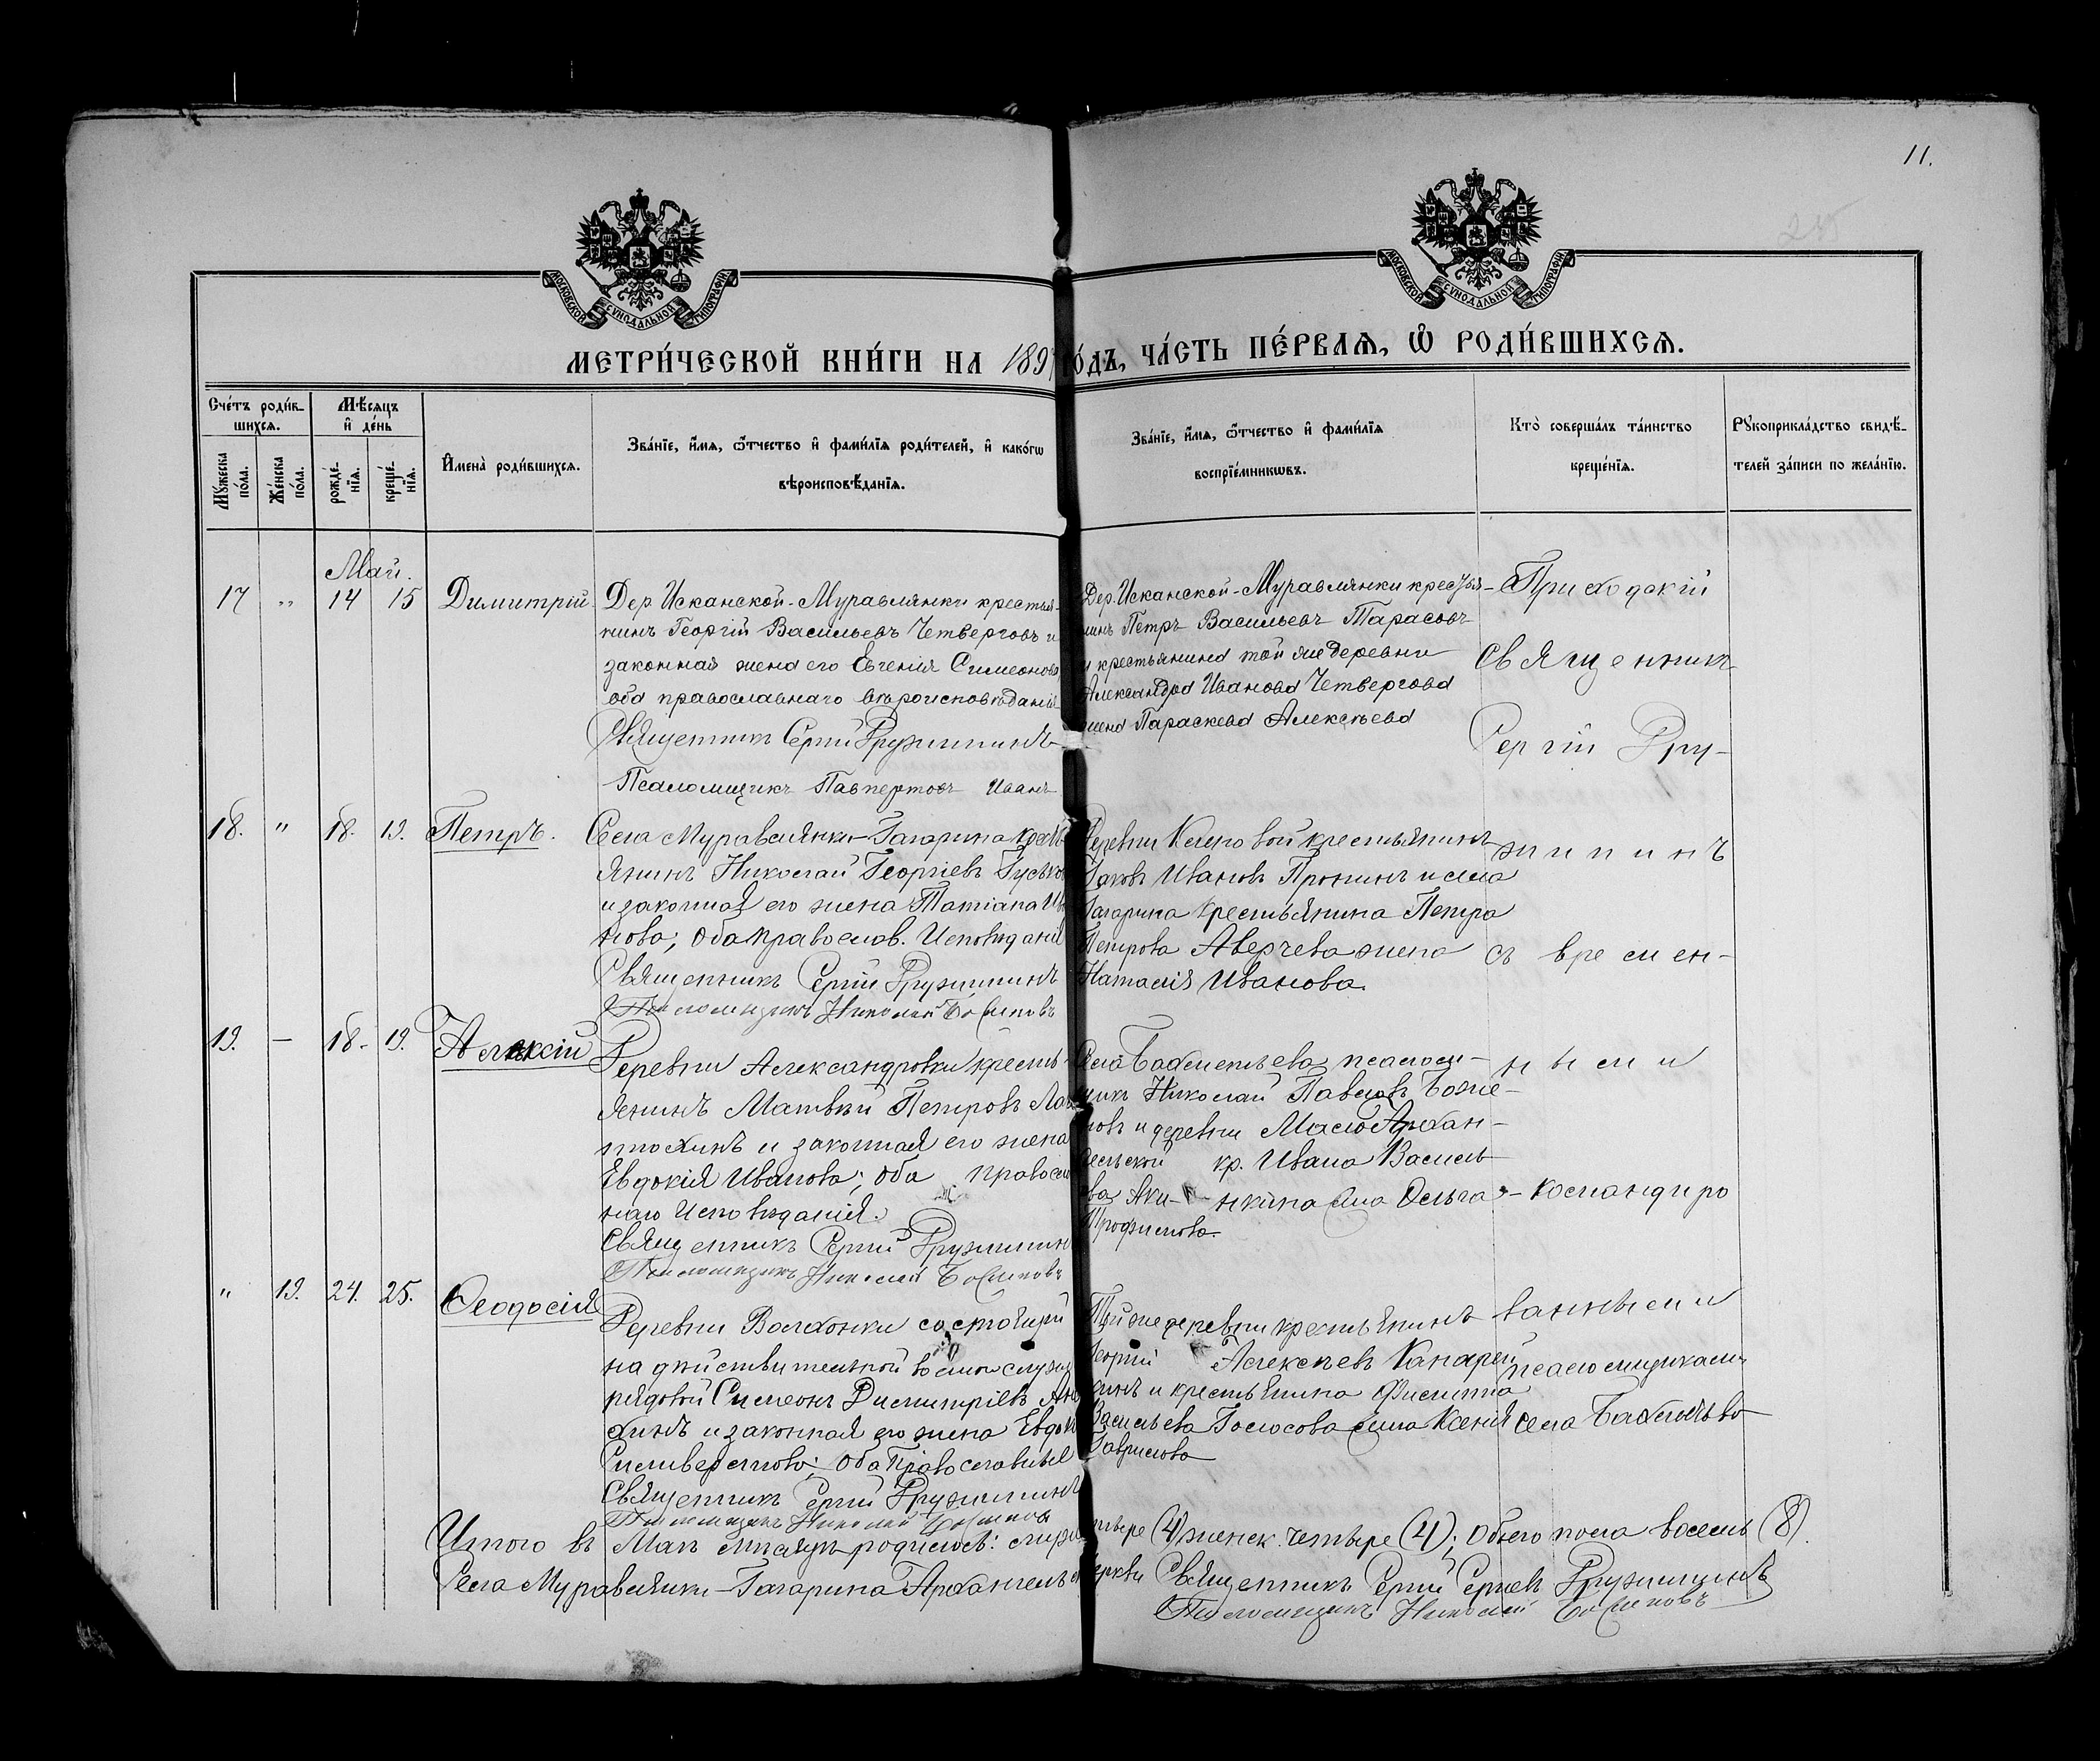 11.
МОСКОВСКОЙ СѴНОДАЛЬНОЙ ТИПОГРАФІИ
МОСКОВСКОЙ СѴНОДАЛЬНОЙ ТИПОГРАФІИ
МЕТРИ́ЧЕСКОЙ КНИ́ГИ НА 1897 ГО́ДЪ, ЧА́СТЬ ПЕ́РВАѦ, Ѡ҆ РОДИ́ВШИХСѦ.
Сче́тъ роди́в-
шихсѧ.
Мꙋ́жеска по́ла.
Же́нска по́ла.
Мѣ́сѧцъ и҆ де́нь
рожде́-
нїѧ.
креще́-
нїѧ.
И҆мена̀ роди́вшихсѧ.
Зва́нїе, и҆́мѧ, ѻ҆́тчество и҆ фами́лїѧ роди́телей, и҆ како́гѡ
вѣроисповѣ́данїѧ.
Зва́нїе, и҆́мѧ, ѻ҆́тчество и҆ фами́лїѧ
воспрїе́мникѡвъ.
Кто̀ соверша́лъ та́инство
креще́нїѧ.
Рꙋкоприкла́дство свидѣ́-
телей за́писи по жела́нїю.
Май.
17 " 14 15 Димитрій
Дер. Исканской-Муравлянки крестья-
нинъ Георгій Васильевъ Четверговъ и
законная жена его Евгенія Симеонова,
оба православнаго вѣроисповѣданія
Священникъ Сергій Дружининъ
Псаломщикъ Иванъ
Дер. Исканской-Муравлянки крестья-
нинъ Петръ Васильевъ Тарасовъ
и крестьянина той же деревни
Александра Иванова Четвергова
жена Параскева Алексѣева
Приходскій
Священникъ
Сергій Дру-
18. " 18. 19. Петръ.
Села Муравлянки-Гагарина крест
янинъ Николай Георгіевъ Гуськовъ
и законная его жена Татіана Ива
нова; оба православ. Исповѣданія
Священникъ Сергій Дружининъ
Псаломщикъ Николай
Деревни крестьянинъ
Іаковъ Ивановъ Пронинъ и села
Гагарина крестьянина Петра
Петрова Аверчева жена
Наталія Иванова.
жининъ
съ времен-
19. — 18. 19. Алексій
Деревни Александровки кресть-
янинъ Матвѣй Петровъ Лап
тохинъ и законная его жена
Евдокія Иванова; оба православ
наго Исповѣданія.
Священникъ Сергій Дружининъ
Псаломщикъ Николай
Села Бахметьева псалом-
щикъ Николай Павловъ Боже-
новъ и деревни Мало Архан-
гельской кр. Ивана Василь-
ева Аки- нкина Ольга
Трофимова.
ными
- командиро
" 19. 24. 25. Ѳеодосія
Деревни Волхонки состоящій
на дѣйствительной военной службѣ
рядовой Симеонъ Димитріевъ
хинъ и законная его жена Евдок
Силиверстова; оба Православные
Священникъ Сергій Дружининъ
Псаломщикъ Николай
Той же деревни крестьянинъ
Георгій Алексѣевъ Канарей
кинъ и крестьянина Филиппа
Васильева Голосова Ксенія
Гаврилова
ванными
псаломщиками
села Бахметьево
Итого въ Маѣ мѣсяцѣ родилось: муж. четыре (4) женск. четыре (4); Обоего пола восемь (8).
Села Муравлянки-Гагарина Архангельской церкви Священникъ Сергій Сергіевъ Дружининъ
Псаломщикъ Николай